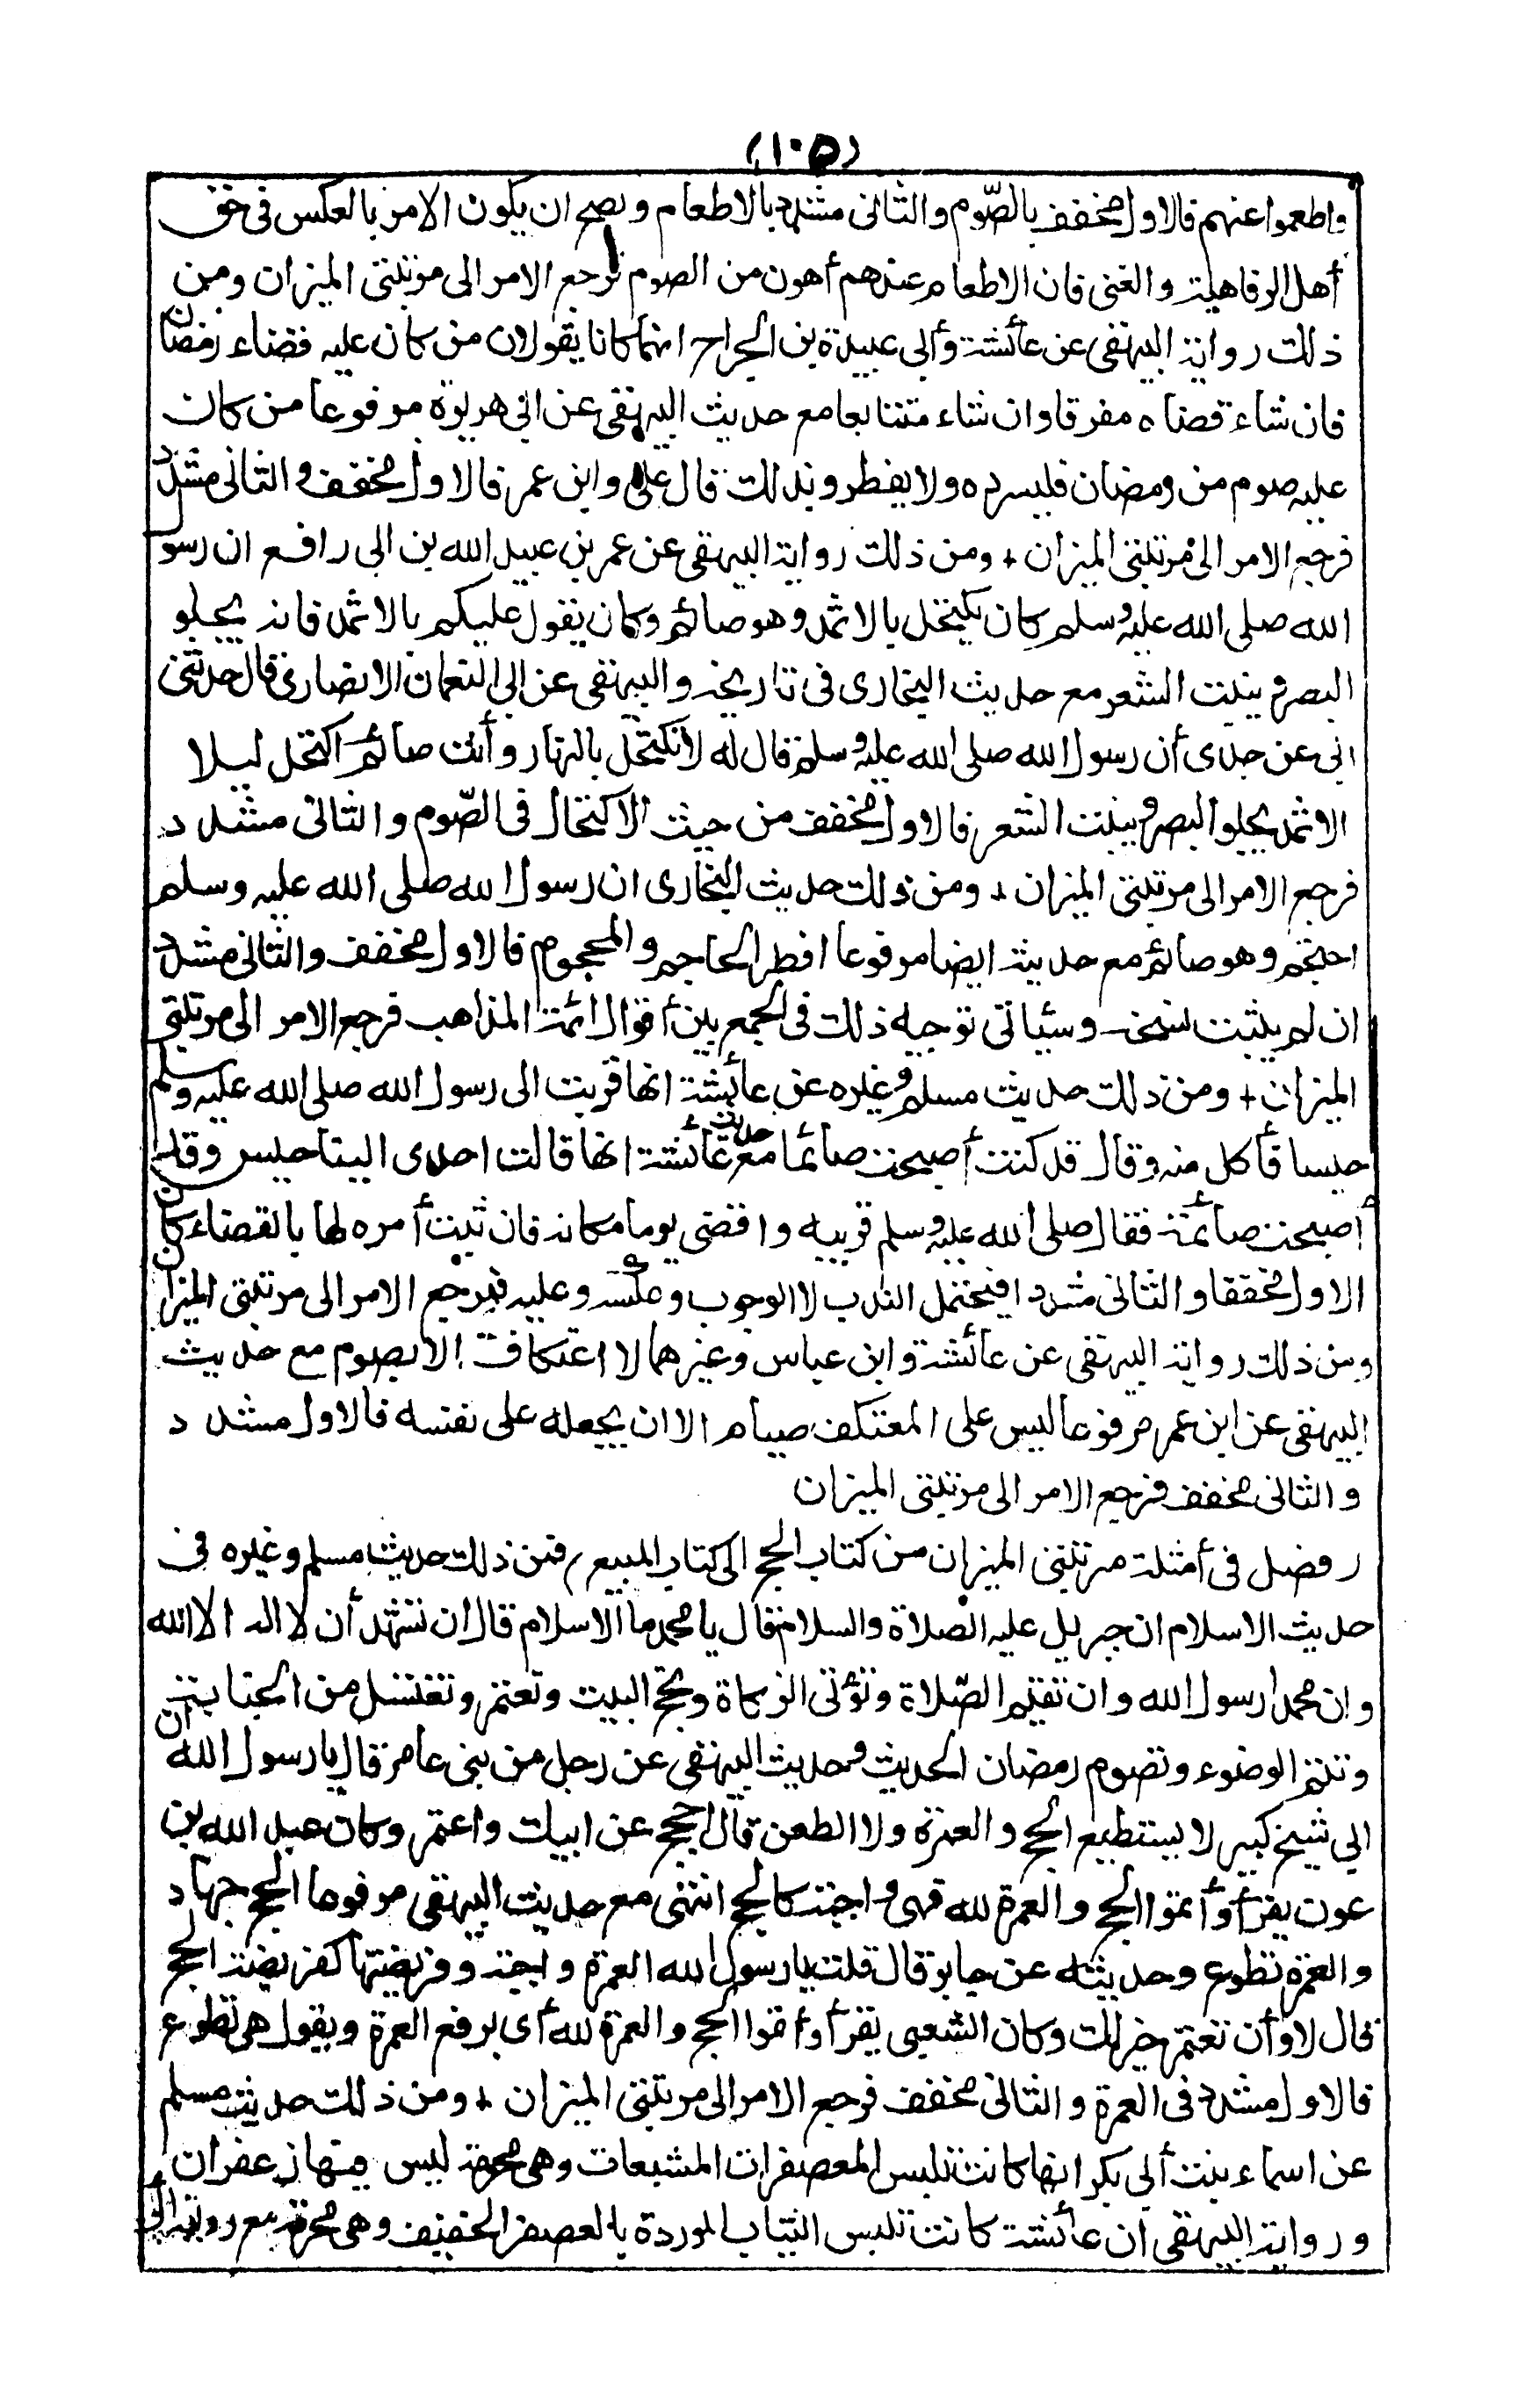 (١٠٥)
واطعموا عنهم فالاول مخفف بالصّوم والثانى مشدد بالاطعام ويصح ان يكون الامر بالعكس فى حق
أهل الرفاهية والغنى فان الاطعام عندهم أهون من الصوم فرجع الامر الى مرتبتى الميزان ومن
ذلك رواية البيهقى عن عائشة وأبى عبيدة بن الجراح انهما كانا يقولان من كان عليه قضاء رمضان
فان شاء قضاه مفرقا وان شاء متتابعا مع حديث البيهقى عن ابى هريرة مرفوعا من كان
عليه صوم من رمضان فليسرده ولا يفطر وبذلك قال على وابن عمر فالاول مخفف والثانى مشدد
فرجع الامر الى مرتبتى الميزان + ومن ذلك رواية البيهقى عن عمر بن عبيد الله بن ابى رافع ان رسول
الله صلى الله عليه وسلم كان يكتحل بالاثمد وهو صائم وكان يقول عليكم بالاثمد فانه يجلو
البصر وينبت الشعر مع حديث البخارى فى تاريخه والبيهقى عن ابى النعمان الانصارى قال حدثنى
ابى عن جدى أن رسول الله صلى الله عليه وسلم قال له لا تكتحل بالنهار وأنت صائم اكتحل ليلا
الاثمد يجلو البصر وينبت الشعر فالاول مخفف من حيث الاكتحال فى الصّوم والثانى مشدد
فرجع الامر الى مرتبتى الميزان + ومن ذلك حديث البخارى ان رسول الله صلى الله عليه وسلم
احتجم وهو صائم مع حديثه ايضا مرفوعا افطر الحاجم والمحجوم فالاول مخفف والثانى مشدد
ان لم يثبت نسخه وسيأتى توجيه ذلك فى الجمع بين أقوال ائمة المذاهب فرجع الامر الى مرتبتى
الميزان + ومن ذلك حديث مسلم وغيره عن عائشة انها قربت الى رسول الله صلى الله عليه وسلم
حيسا فأكل منه وقال قد كنت أصبحت صائما مع حديث عائشة انها قالت اهدى الينا حيس وقد
أصبحت صائمة فقال صلى الله عليه وسلم قربيه واقضى يوما مكانه فان ثبت أمره لها بالقضاء كان
الاول مخففا والثانى مشددا فيحتمل الندب لا الوجوب وعكسه وعليه فيرجع الامر الى مرتبتى الميزان
ومن ذلك رواية البيهقى عن عائشة وابن عباس وغيرهما لا اعتكاف الا بصوم مع حديث
البيهقى عن ابن عمر مرفوعا ليس على المعتكف صيام الا ان يجعله على نفسه فالاول مشدد
والثانى مخفف فرجع الامر الى مرتبتى الميزان
(فصل فى أمثلة مرتبتى الميزان من كتاب الحج الى كتاب البيع) فمن ذلك حديث مسلم وغيره فى
حديث الاسلام ان جبريل عليه الصلاة والسلام قال يا محمد ما الاسلام قال ان تشهد أن لا اله الا الله
وان محمدا رسول الله وان تقيم الصّلاة وتؤتى الزكاة وتحج البيت وتعتمر وتغتسل من الجنابة
وتتم الوضوء وتصوم رمضان الحديث وحديث البيهقى عن رجل من بنى عامر قال يا رسول الله ان
ابى شيخ كبير لا يستطيع الحج والعمرة ولا الطعن قال احجج عن ابيك واعتمر وكان عبد الله بن
عون يقرأ وأتموا الحج والعمرة لله فهى واجبة كالحج انتهى مع حديث البيهقى مرفوعا الحج جهاد
والعمرة تطوع وحديثه عن جابر قال قلت يا رسول الله العمرة واجبة وفريضتها كفريضة الحج
قال لا وأن تعتمر خير لك وكان الشعبى يقرأ وأتموا الحج والعمرة لله أى برفع العمرة ويقول هى تطوع
فالاول مشدد فى العمرة والثانى مخفف فرجع الامر الى مرتبتى الميزان + ومن ذلك حديث مسلم
عن اسماء بنت أبى بكر انها كانت تلبس المعصفرات المشبعات وهى محرمة ليس فيها زعفران
ورواية البيهقى ان عائشة كانت تلبس الثياب الموردة بالعصفر الخفيف وهى محرمة مع رواية أبى